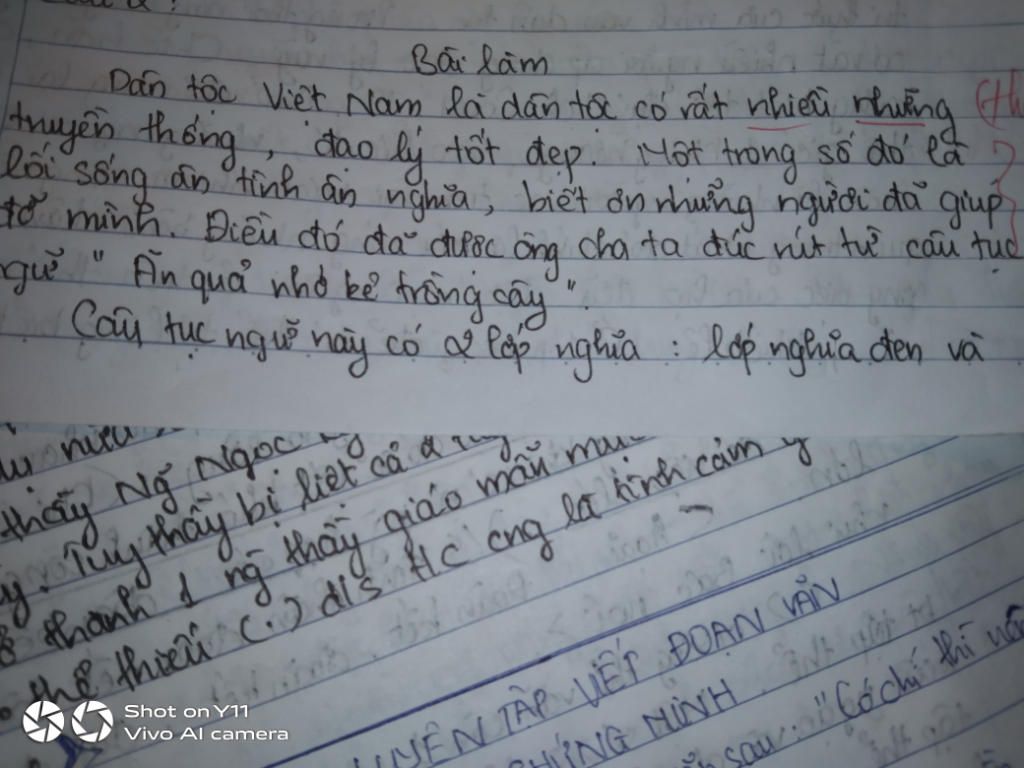 Bài làm
Dân tộc Việt Nam là dân tộc có rất nhiều những
truyền thống, đạo lý tốt đẹp. Một trong số đó là
lối sống ân tình ân nghĩa, biết ơn những người đã giúp
đỡ mình. Điều đó đã được ông cha ta đúc rút từ câu tục
ngữ "Ăn quả nhớ kẻ trồng cây"
Câu tục ngữ này có 2 lớp nghĩa : lớp nghĩa đen và
thầy Ng Ngọc
Tuy thầy bị liệt cả 2
thành 1 ng thầy giáo mẫu mực
thể thiếu (.) đ/s HC cng là tình cảm
VIẾT ĐOẠN VĂN
CHỨNG MINH
sau: "Có chí thì nên
Shot on Y11
Vivo AI camera